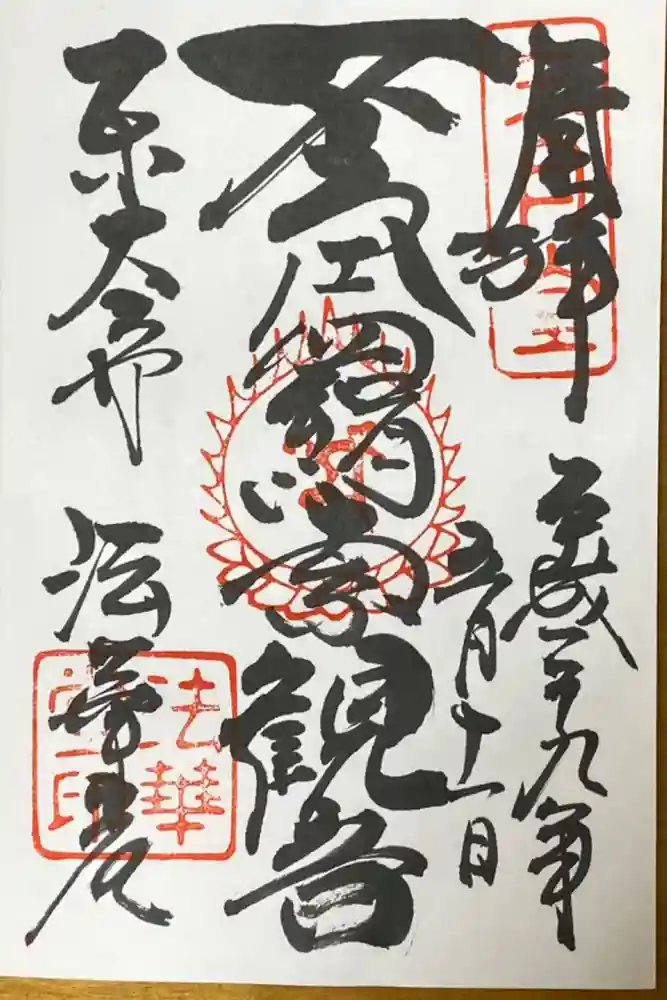 奉拝
平成二十九年
五月十一日
不空羂索観音
東大寺
法華堂
法華
堂印